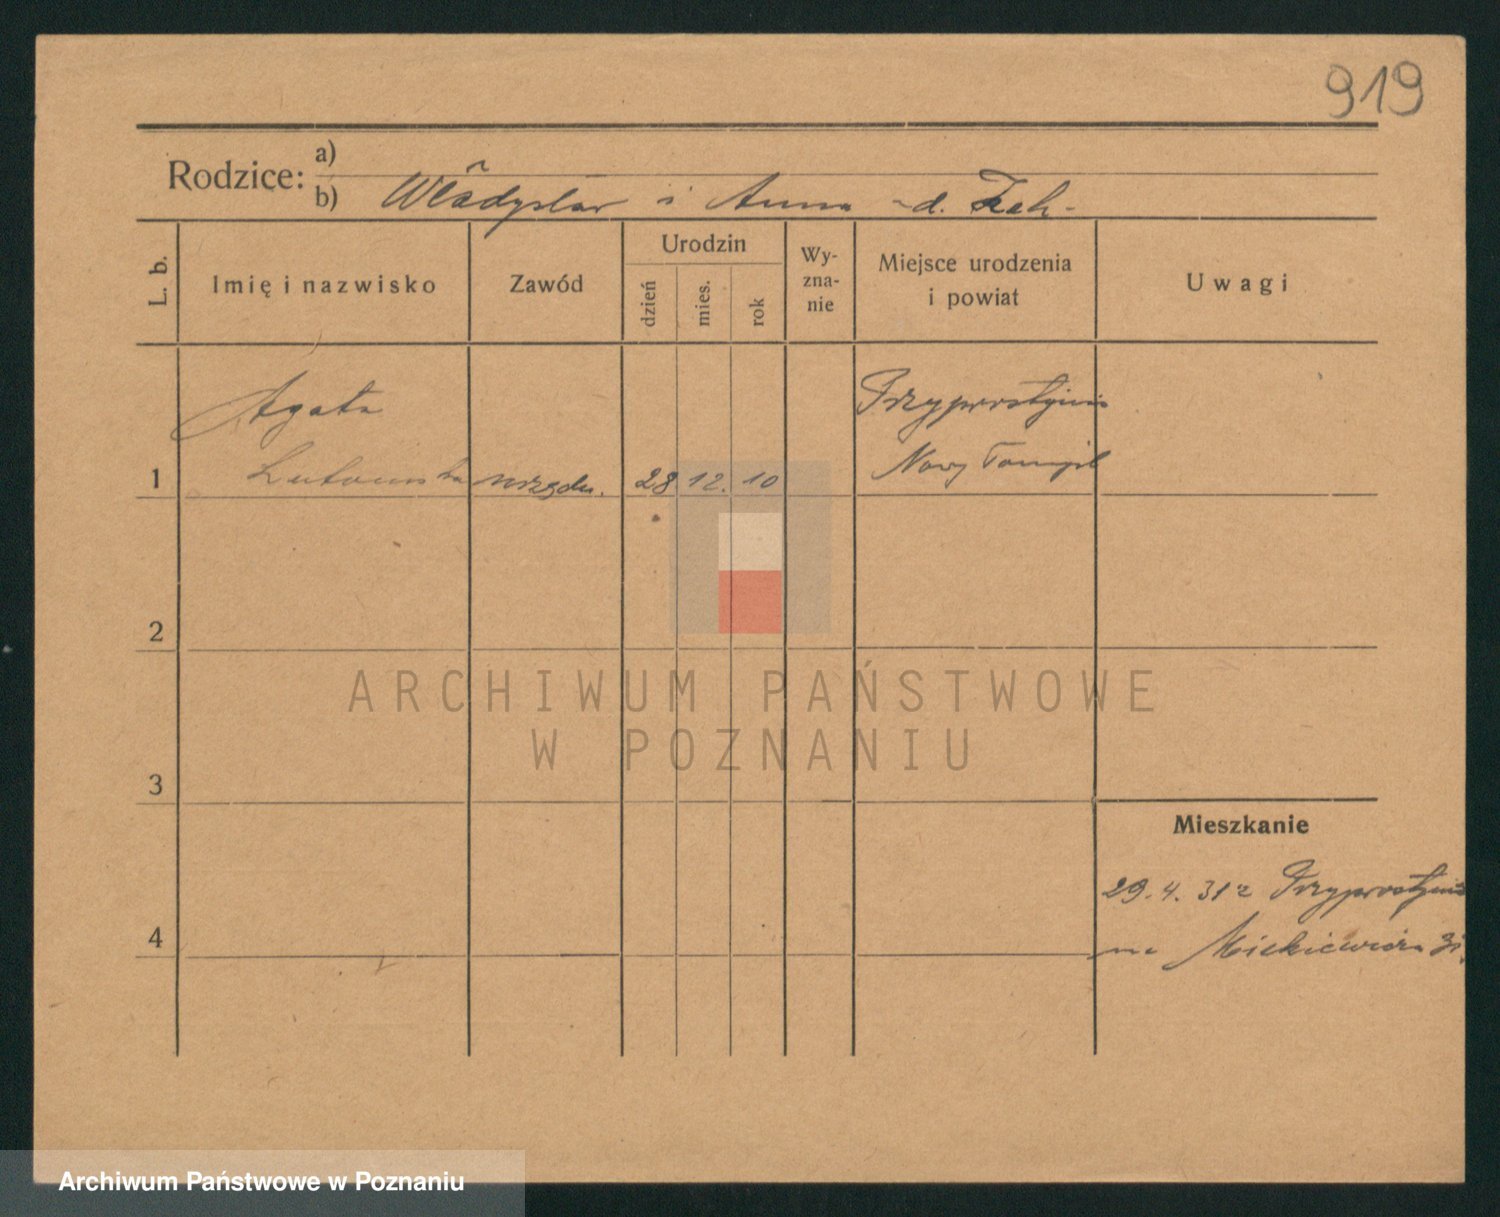 919
Rodzice: a)
b) Władysław i Anna d. Żak
L. b.
Imię i nazwisko
Zawód
Urodzin
dzień
mies.
rok
Wy-
zna-
nie
Miejsce urodzenia
i powiat
Uwagi
Agata
Przyprostynia
1 urzędn. 28 12. 10 Nowy Tomyśl
2
ARCHIWUM PAŃSTWOWE
W POZNANIU
3
Mieszkanie
29.4.31 z Przyprostynia
4 na Mickiewicza
Archiwum Państwowe w Poznaniu